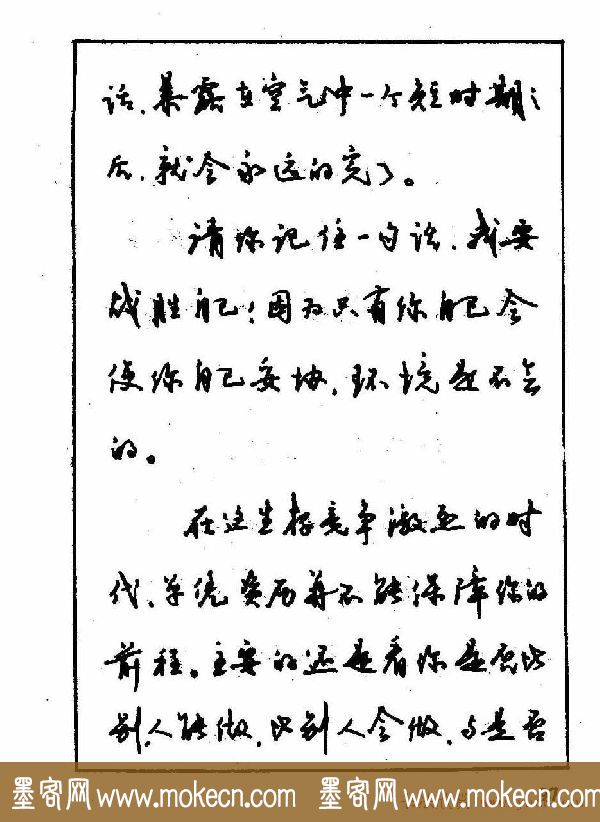 话，暴露在空气中一个短时期之
后，就会永远的完了。
请你记住一句话，我要
战胜自己！因为只有你自己会
使你自己妥协，环境是不会
的。
在这生存竞争激烈的时
代，单凭资历并不能保障你的
前程。主要的还是看你是否比
别人能做，比别人会做，与是否
墨客网 www.mokecn.com 墨客网 www.mokecn.com